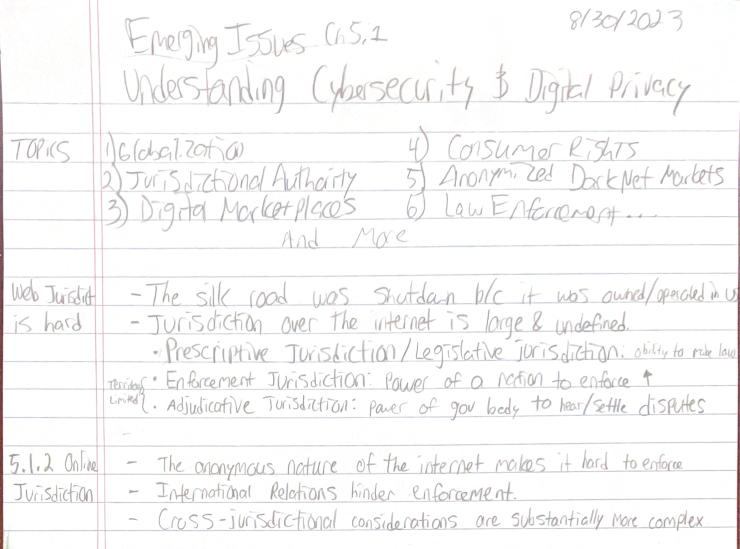 8/30/2023
Emerging Issues Ch 5.1
Understanding Cybersecurity & Digital Privacy
TOPICS 1) Globalization 4) Consumer Rights
2) Jurisdictional Authority 5) Anonymized DarkNet Markets
3) Digital Marketplaces 6) Law Enforcement...
And More
Web Jurisdict - The silk road was shutdown b/c it was owned/operated in US
is hard - Jurisdiction over the internet is large & undefined.
• Prescriptive Jurisdiction/Legislative jurisdiction: ability to make law
• Enforcement Jurisdiction: Power of a nation to enforce ↑
Limited • Adjudicative Jurisdiction: power of gov body to hear/settle disputes
-
5.1.2 Online - The anonymous nature of the internet makes it hard to enforce
Jurisdiction - International Relations hinder enforcement.
- Cross-jurisdictional considerations are substantially more complex